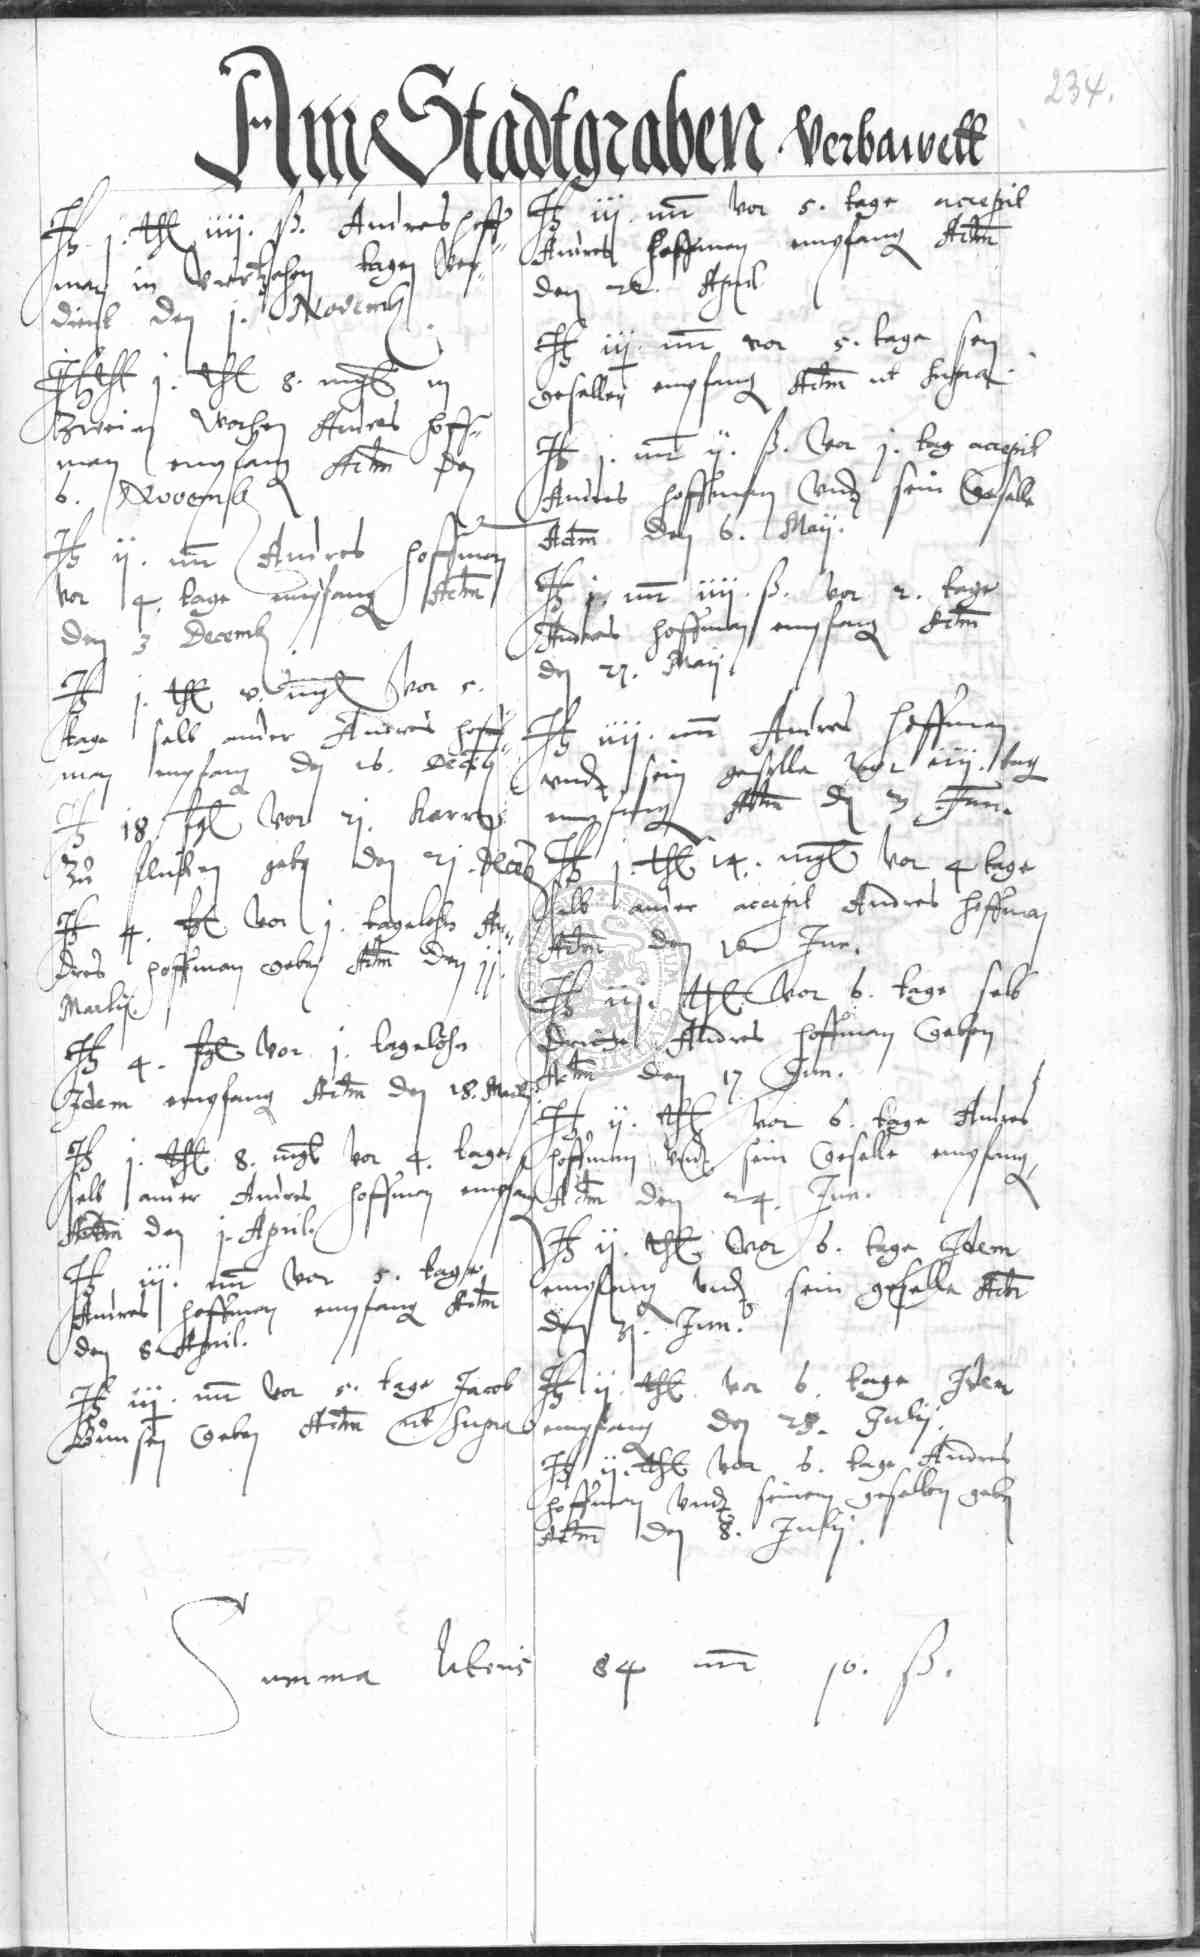 234.
Am Stadtgraben Verbawett
It j. thl iiij. ß. Andres hoff-
man in viertzehen tagen ver-
dient den j. Novemb
It j. thl 8. mgl in
zweien Wochen Andres hoff-
man empfang Actm den
6. Novemb
It ij. mr Andres hoffman
vor 4. tage empfang Actm
den 3 Decemb
It j. thl v. mgl vor 5.
tage selb ander Andres hoff-
man empfang den 16. Decēb
It 18 fgl vor 21. karren
zu geben den 21. Decēb
It 4. fgl vor j. tagelohn An-
dres hoffman geben Actm den jj.
Martij.
It 4. fgl vor j. tagelohn
Idem empfang Actm den 18. Martij.
It j. thl 8. mgl vor 4. tage
selb ander Andres hoffman empfang
Actm den j. April.
It iij. mr vor 5. tage
Andres hoffman empfang Actm
den 8 April.
It iij. mr vor 5. tage Jacob
geben Actm ut supra
It iij. mr vor 5. tage accepit
Andres hoffman empfang Actm
den 22. April
It iij. mr vor 5. tage sein
gesellen empfang Actm ut supra.
It j. mr ij. ß. vor j. tag accepit
Andres hoffman vnd sein Geselle
Actm den 6. Maij.
It j. mr iiij. ß. vor 2. tage
Andres hoffman empfang Actm
den 27. Maij.
It iiij. mr Andres hoffman
vnd sein geselle vor iiij. tag
empfang Actm den 3 Jun.
It j. thl 14. mgl vor 4 tage
selb ander accepit Andres hoffman
Actm den 10 Jun.
It iij. thl vor 6. tage selb
dritte Andres hoffman Geben
Actm den 17 Jun.
It ij. thl vor 6. tage Andres
hoffman vnd sein Geselle empfang,
Actm den 24. Jun.
It ij. thl vor 6. tage Idem
empfang vnd sein geselle Actm
den 31. Jun.
It ij. thl vor 6. tage Idem
empfang den 28. Julij.
It ij. thl vor 6. tage Andres
hoffman vnd seinem gesellen geben
Actm den 8. Julij.
Summa lateris 84 mr 10. ß.